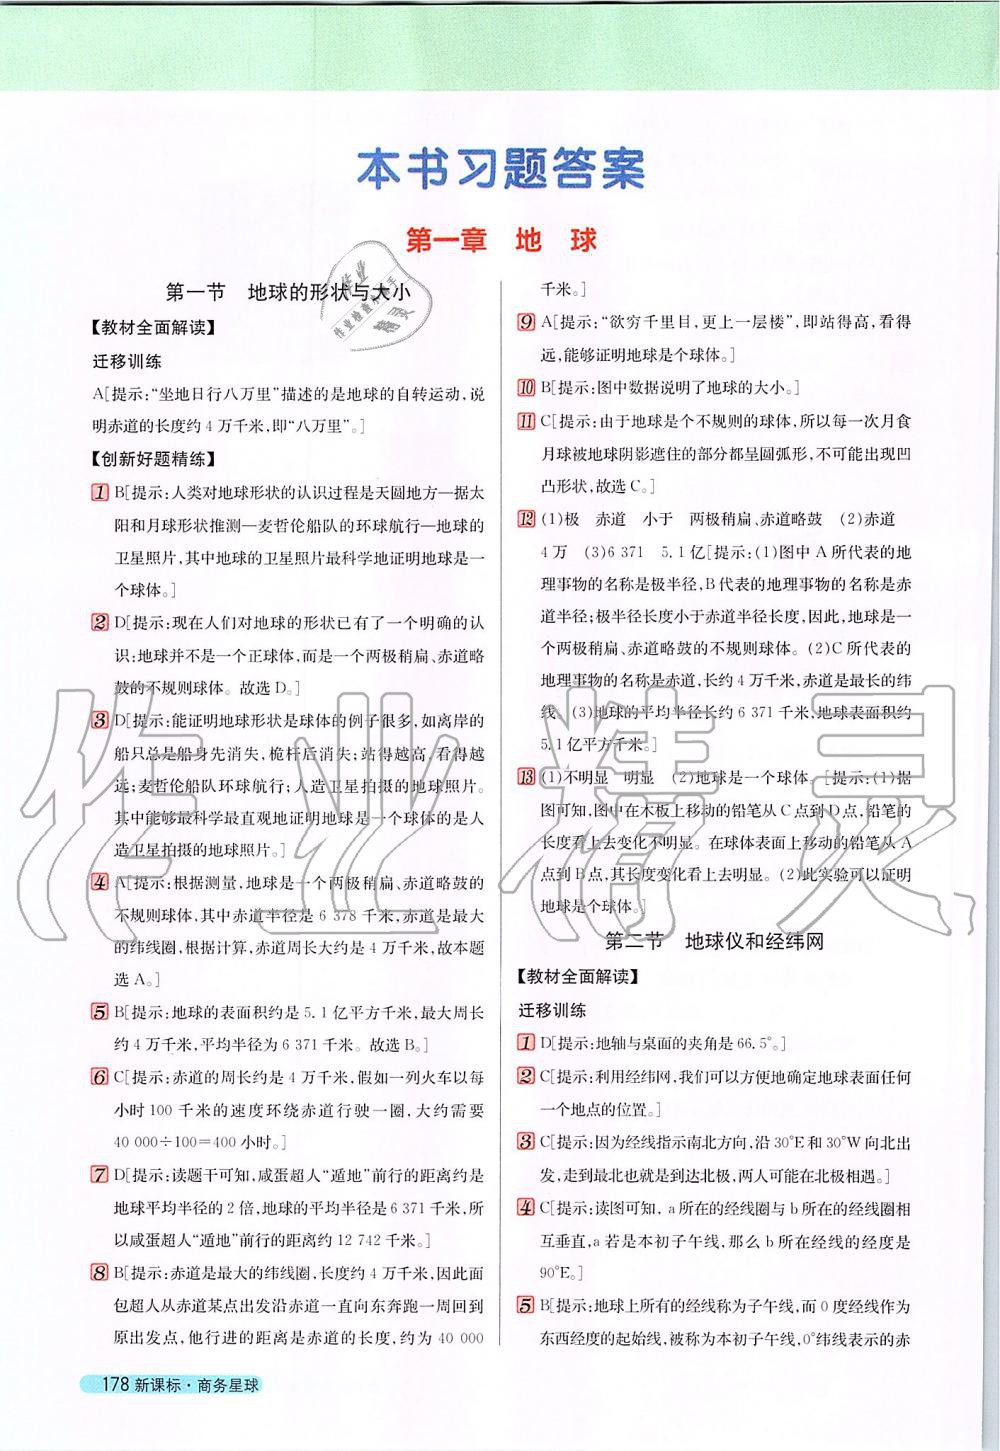 本书习题答案
第一章 地 球
第一节 地球的形状与大小
【教材全面解读】
迁移训练
A[提示:“坐地日行八万里”描述的是地球的自转运动,说
明赤道的长度约4万千米,即“八万里”。]
【创新好题精练】
1 B[提示:人类对地球形状的认识过程是天圆地方—据太
阳和月球形状推测—麦哲伦船队的环球航行—地球的
卫星照片,其中地球的卫星照片最科学地证明地球是一
个球体。]
2 D[提示:现在人们对地球的形状已有了一个明确的认
识:地球并不是一个正球体,而是一个两极稍扁、赤道略
鼓的不规则球体。故选D。]
3 D[提示:能证明地球形状是球体的例子很多,如离岸的
船只总是船身先消失,桅杆后消失;站得越高,看得越
远;麦哲伦船队环球航行;人造卫星拍摄的地球照片。
其中能够最科学最直观地证明地球是一个球体的是人
造卫星拍摄的地球照片。]
4 A[提示:根据测量,地球是一个两极稍扁、赤道略鼓的
不规则球体,其中赤道半径是6 378千米,赤道是最大
的纬线圈,根据计算,赤道周长大约是4万千米,故本题
选A。]
5 B[提示:地球的表面积约是5.1亿平方千米,最大周长
约4万千米,平均半径为6 371千米。故选B。]
6 C[提示:赤道的周长约是4万千米,假如一列火车以每
小时100千米的速度环绕赤道行驶一圈,大约需要
40 000÷100=400小时。]
7 D[提示:读题干可知,咸蛋超人“遁地”前行的距离约是
地球平均半径的2倍,地球的平均半径是6 371千米,所
以咸蛋超人“遁地”前行的距离约12 742千米。]
8 B[提示:赤道是最大的纬线圈,长度约4万千米,因此面
包超人从赤道某点出发沿赤道一直向东奔跑一周回到
原出发点,他行进的距离是赤道的长度,约为40 000
千米。]
9 A[提示:“欲穷千里目,更上一层楼”,即站得高,看得
远,能够证明地球是个球体。]
10 B[提示:图中数据说明了地球的大小。]
11 C[提示:由于地球是个不规则的球体,所以每一次月食
月球被地球阴影遮住的部分都呈圆弧形,不可能出现凹
凸形状,故选C。]
12 (1)极 赤道 小于 两极稍扁、赤道略鼓 (2)赤道
4万 (3)6 371 5.1亿[提示:(1)图中A所代表的地
理事物的名称是极半径,B代表的地理事物的名称是赤
道半径;极半径长度小于赤道半径长度,因此,地球是一
个两极稍扁、赤道略鼓的不规则球体。(2)C所代表的
地理事物的名称是赤道,长约4万千米,赤道是最长的纬
线。(3)地球的平均半径长约6 371千米,地球表面积约
5.1亿平方千米。]
13 (1)不明显 明显 (2)地球是一个球体。[提示:(1)据
图可知,图中在木板上移动的铅笔从C点到D点,铅笔的
长度看上去变化不明显。在球体表面上移动的铅笔从A
点到B点,其长度变化看上去明显。(2)此实验可以证明
地球是个球体。]
第二节 地球仪和经纬网
【教材全面解读】
迁移训练
1 D[提示:地轴与桌面的夹角是66.5°。]
2 C[提示:利用经纬网,我们可以方便地确定地球表面任何
一个地点的位置。]
3 C[提示:因为经线指示南北方向,沿30°E和30°W向北出
发,走到最北也就是到达北极,两人可能在北极相遇。]
4 C[提示:读图可知,a所在的经线圈与b所在的经线圈相
互垂直,a若是本初子午线,那么b所在经线的经度是
90°E。]
5 B[提示:地球上所有的经线称为子午线,而0度经线作为
东西经度的起始线,被称为本初子午线,0°纬线表示的赤
178 新课标·商务星球
作业检查小助手
作业精灵